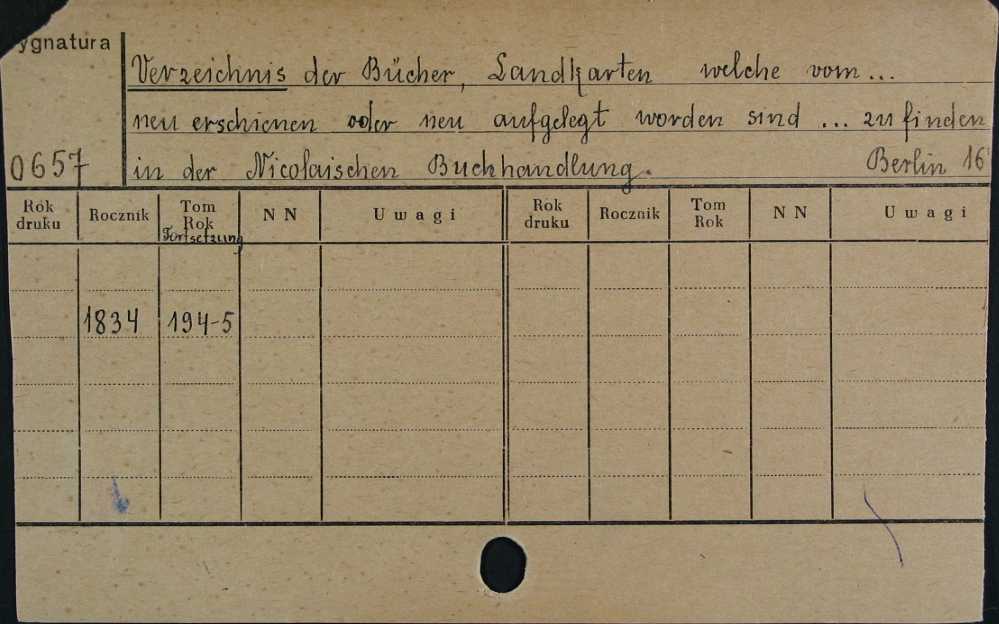 ygnatura
Verzeichnis der Bücher, Landkarten welche vom...
neu erschienen oder neu aufgelegt worden sind ... zu finden
0657 in der Nicolaischen Buchhandlung. Berlin 16°
Rok druku Rocznik Tom Rok N N Uwagi Rok druku Rocznik Tom Rok N N Uwagi
Fortsetzung
1834 194-5